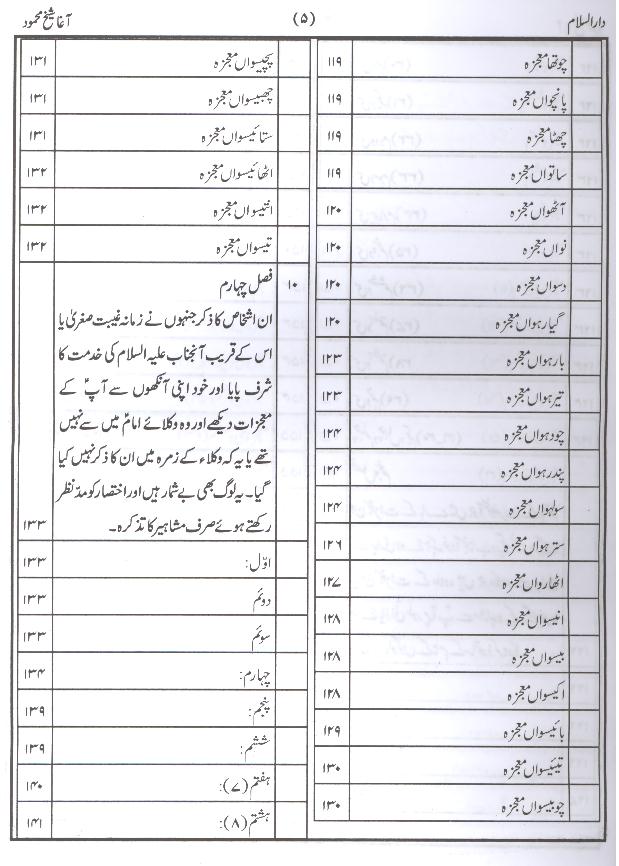 دارالسلام (۵) آغا شیخ محمود
چوتھا معجزہ ۱۱۹
پانچواں معجزہ ۱۱۹
چھٹا معجزہ ۱۱۹
ساتواں معجزہ ۱۱۹
آٹھواں معجزہ ۱۲۰
نواں معجزہ ۱۲۰
دسواں معجزہ ۱۲۰
گیارہواں معجزہ ۱۲۰
بارہواں معجزہ ۱۲۳
تیرہواں معجزہ ۱۲۳
چودہواں معجزہ ۱۲۴
پندرہواں معجزہ ۱۲۴
سولہواں معجزہ ۱۲۴
سترہواں معجزہ ۱۲۶
اٹھارواں معجزہ ۱۲۷
انیسواں معجزہ ۱۲۸
بیسواں معجزہ ۱۲۸
اکیسواں معجزہ ۱۲۸
بائیسواں معجزہ ۱۲۹
تیئیسواں معجزہ ۱۳۰
چوبیسواں معجزہ ۱۳۰
پچیسواں معجزہ ۱۳۱
چھبیسواں معجزہ ۱۳۱
ستائیسواں معجزہ ۱۳۱
اٹھائیسواں معجزہ ۱۳۲
انتیسواں معجزہ ۱۳۲
تیسواں معجزہ ۱۳۲
۱۰ فصل چہارم
ان اشخاص کا ذکر جنہوں نے زمانہ غیبت صغریٰ یا
اس کے قریب آنجناب علیہ السلام کی خدمت کا
شرف پایا اور خود اپنی آنکھوں سے آپؑ کے
معجزات دیکھے اور وہ وکلائے امامؑ میں سے نہیں
تھے یا یہ کہ وکلاء کے زمرہ میں ان کا ذکر نہیں کیا
گیا۔ یہ لوگ بھی بے شمار ہیں اور اختصار کو مدّنظر
رکھتے ہوئے صرف مشاہیر کا تذکرہ۔ ۱۳۳
اوّل: ۱۳۳
دوئم ۱۳۳
سوئم ۱۳۳
چہارم: ۱۳۴
پنجم: ۱۳۹
ششم: ۱۳۹
ہفتم (۷): ۱۴۰
ہشتم (۸): ۱۴۱